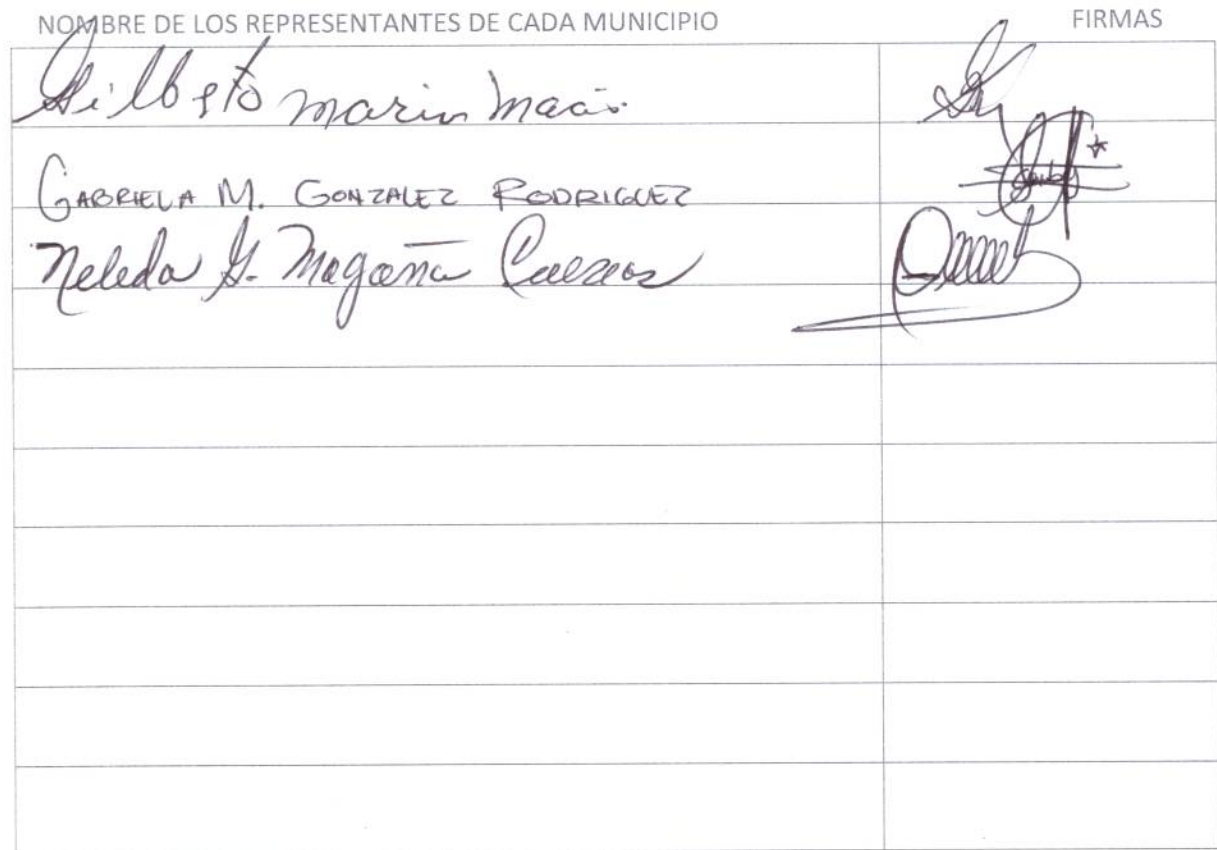 NOMBRE DE LOS REPRESENTANTES DE CADA MUNICIPIO FIRMAS
Gilberto marin
GABRIELA M. GONZALEZ RODRIGUEZ
Neleda G. Magaña